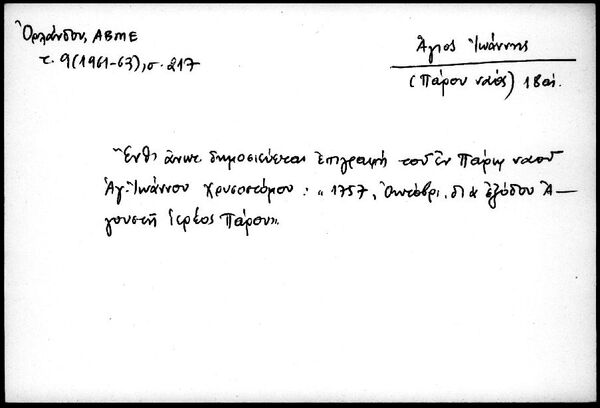 Ὀρλάνδου, ΑΒΜΕ
τ. 9 (1961-63), σ. 217
Ἅγιος Ἰωάννης
(Πάρου ναός) 18 αἰ.
Ἔνθ' ἀνωτ. δημοσιεύεται ἐπιγραφή τοῦ ἐν Πάρῳ ναοῦ
Ἁγ. Ἰωάννου Χρυσοστόμου: «1757, Ὀκτωβρι. δι ἐξόδου Ἀ-
γουστῆ ἱερέος Πάρου».